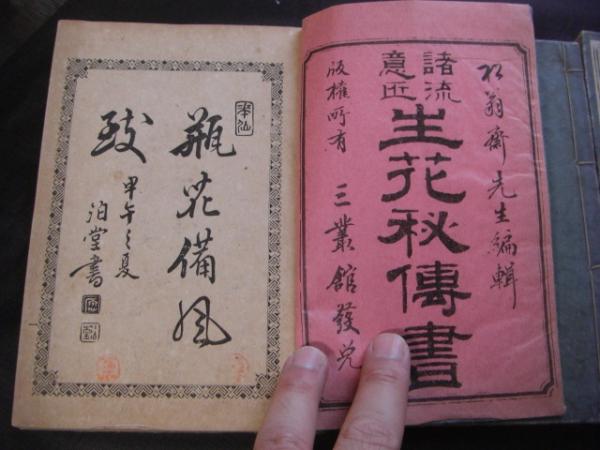 松翁齋先生編輯
諸流
意匠
生花秘傳書
版權所有
三叢館發兌
瓶花備風
致
甲午之夏
泊堂書